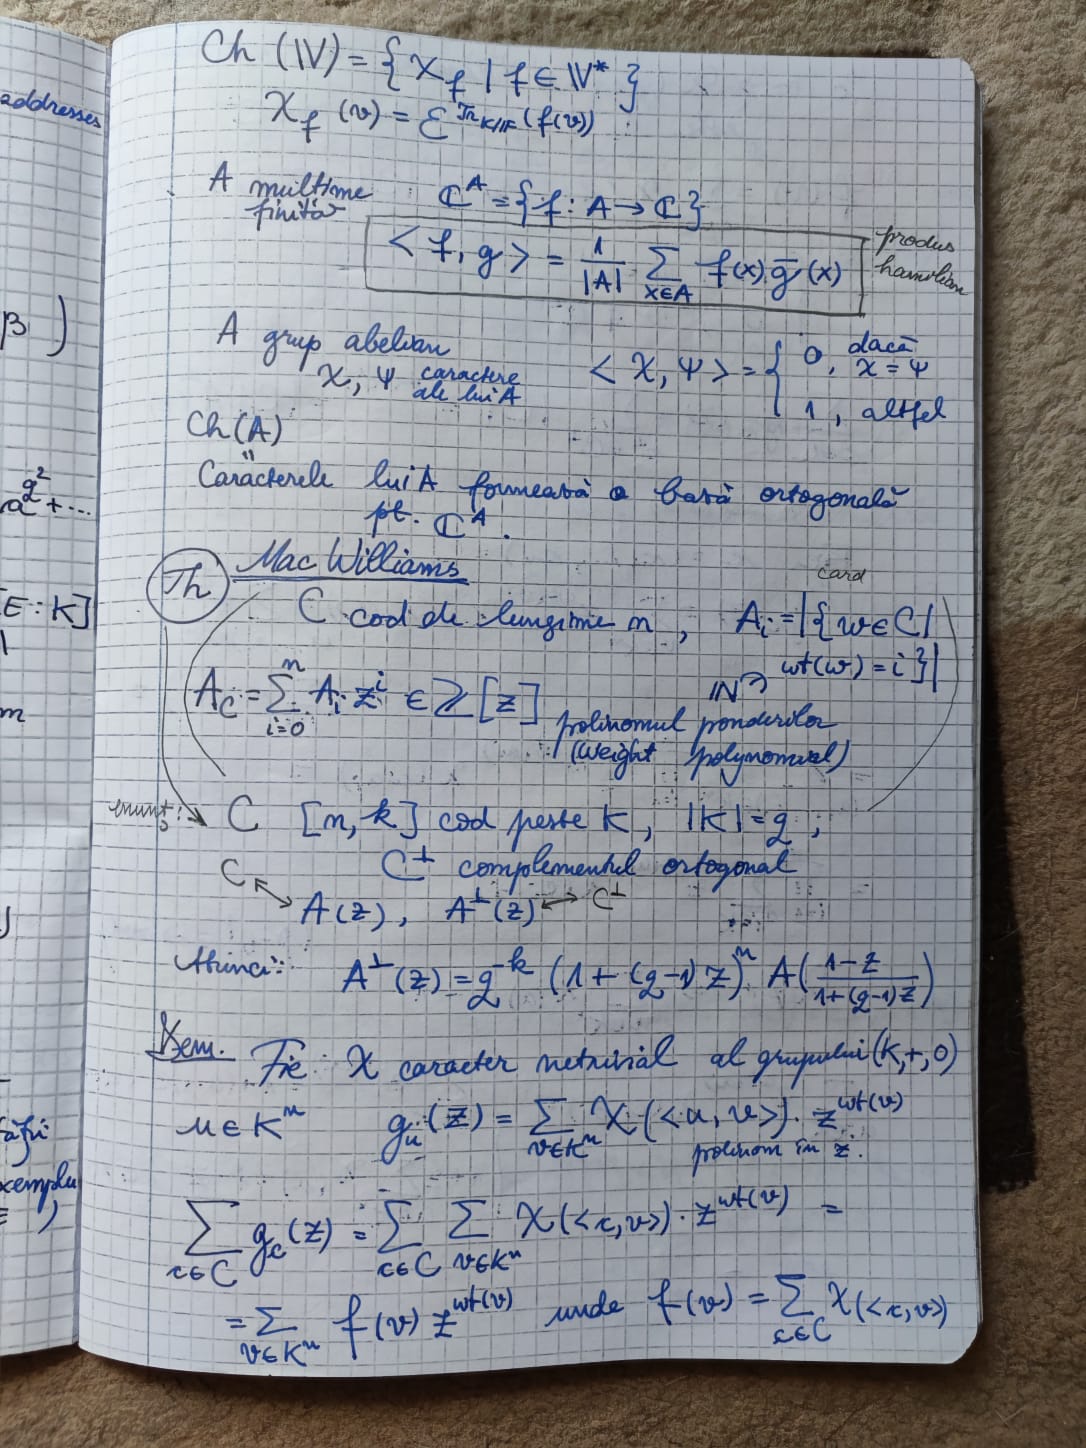 addresses
β )
a^{q^2} + ...
[E : K]
exemplu
Ch (𝕍) = { χ_f | f ∈ 𝕍* }
χ_f (v) = ε^{Tr_{K/F} (f(v))}
A multime finită ℂ^A = { f : A → ℂ }
< f, g > = 1/|A| Σ_{x∈A} f(x) \bar{g}(x)
produs
A grup abelian
χ, ψ caractere ale lui A < χ, ψ > = { 0, dacă χ = ψ
1, altfel
Ch(A)
"
Caracterele lui A formează o bază ortogonală
pt. ℂ^A.
Th Mac Williams
C cod de lungime n, A_i = |{ w ∈ C |
card
wt(w) = i }|
ℕ ∋
A_C = Σ_{i=0}^{n} A_i z^i ∈ ℤ[z]
polinomul ponderilor
(Weight polynomial)
enunț: → C [n, k] cod peste K, |K| = q ;
C^⊥ complementul ortogonal
C ↔ A(z), A^⊥(z) ↔ C^⊥
Atunci: A^⊥(z) = q^{-k} (1 + (q-1) z)^n A( (1-z)/(1+(q-1)z) )
Dem. Fie χ caracter netrivial al grupului (K, +, 0)
u ∈ K^n g_u(z) = Σ_{v∈K^n} χ(<u, v>) · z^{wt(v)}
polinom în z.
Σ_{c∈C} g_c(z) = Σ_{c∈C} Σ_{v∈K^n} χ(<c, v>) · z^{wt(v)} =
= Σ_{v∈K^n} f(v) z^{wt(v)} unde f(v) = Σ_{c∈C} χ(<c, v>)